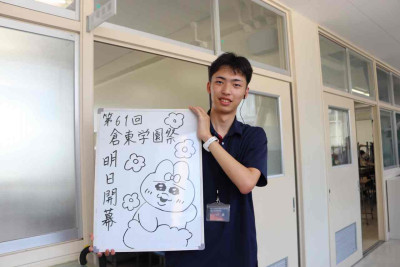 第61回
倉東学園祭
明日開幕